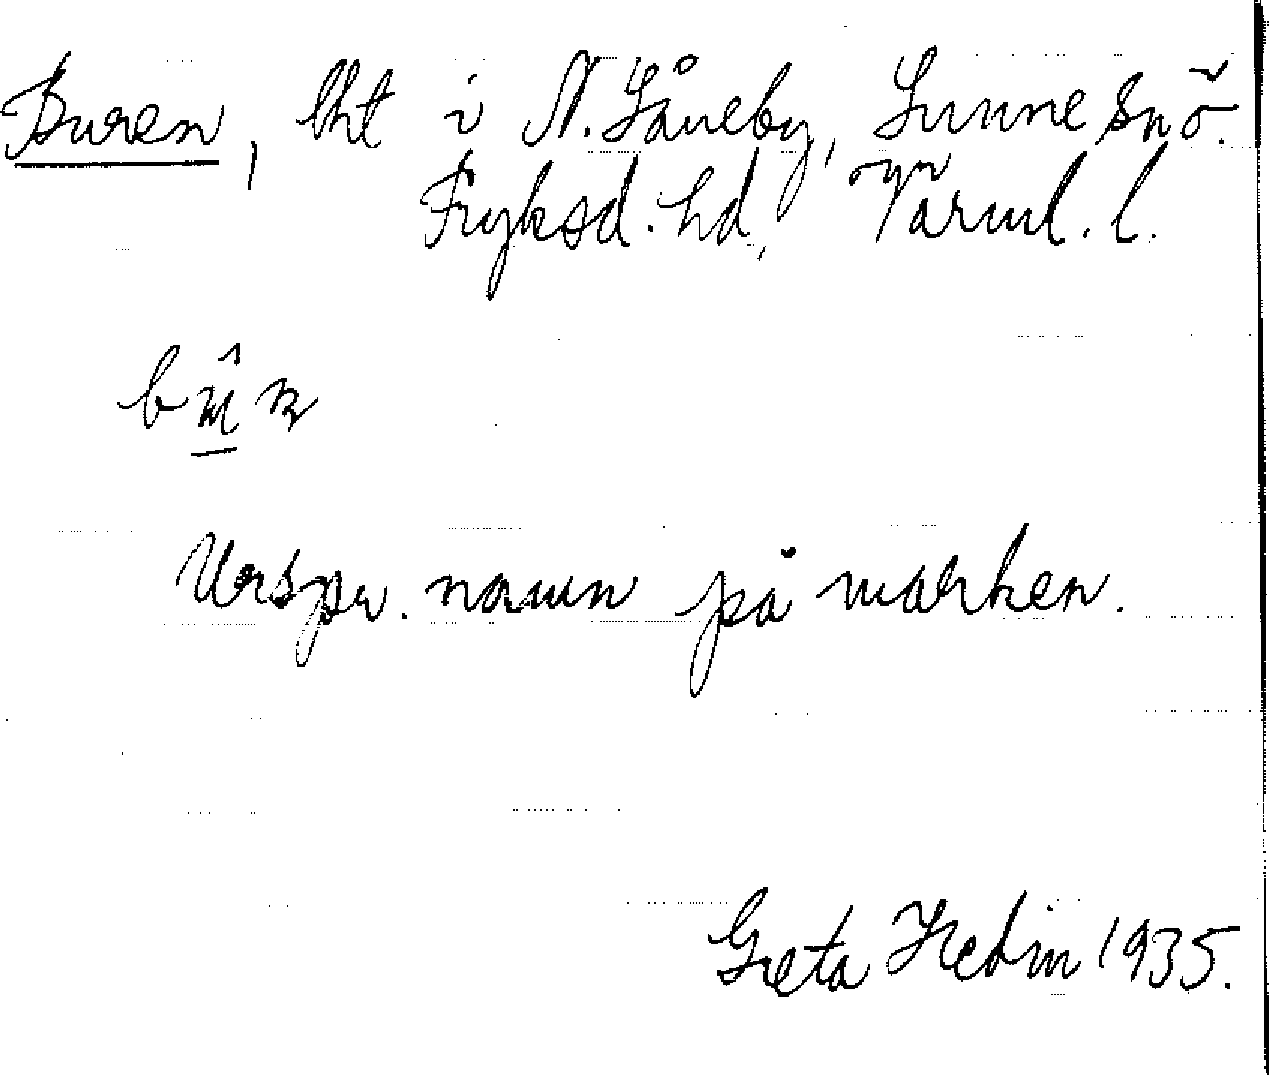 Buren, lht i N. Såneby, Sunne sn
Fryksd. hd, Värml. l.
Urspr. namn på marken.
Greta Hedin 1935.